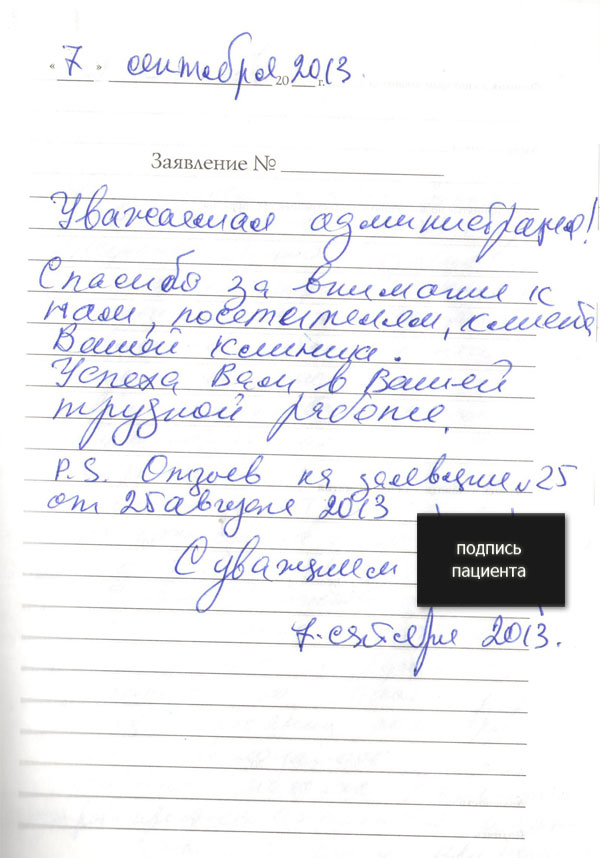 « 7 » сентября 20 2013 г.
Заявление №
Уважаемая администрация!
Спасибо за внимание к
нам, посетителям, клиентам
Вашей клиники.
Успеха Вам в Вашей
трудной работе.
P.S. Отзыв на заявление № 25
от 25 августа 2013
С уважением
подпись
пациента
7 сентября 2013.